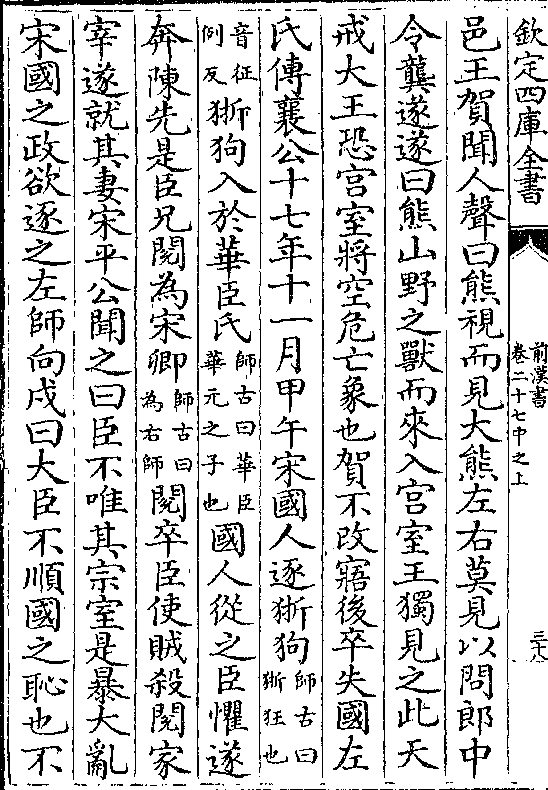 欽定四庫全書
前漢書
卷二十七中之上
邑王賀聞人聲曰熊視而見大熊左右莫見以問郎中
令龔遂遂曰熊山野之獸而來入宮室王獨見之此天
戒大王恐宮室將空危亡象也賀不改寤後卒失國左
氏傳襄公十七年十一月甲午宋國人逐狾狗師古曰狾狂也
音征例反狾狗入於華臣氏師古曰華臣華元之子也國人從之臣懼遂
奔陳先是臣兄閱為宋卿師古曰為右師閱卒臣使賊殺閱家
宰遂就其妻宋平公聞之曰臣不唯其宗室是暴大亂
宋國之政欲逐之左師向戌曰大臣不順國之恥也不